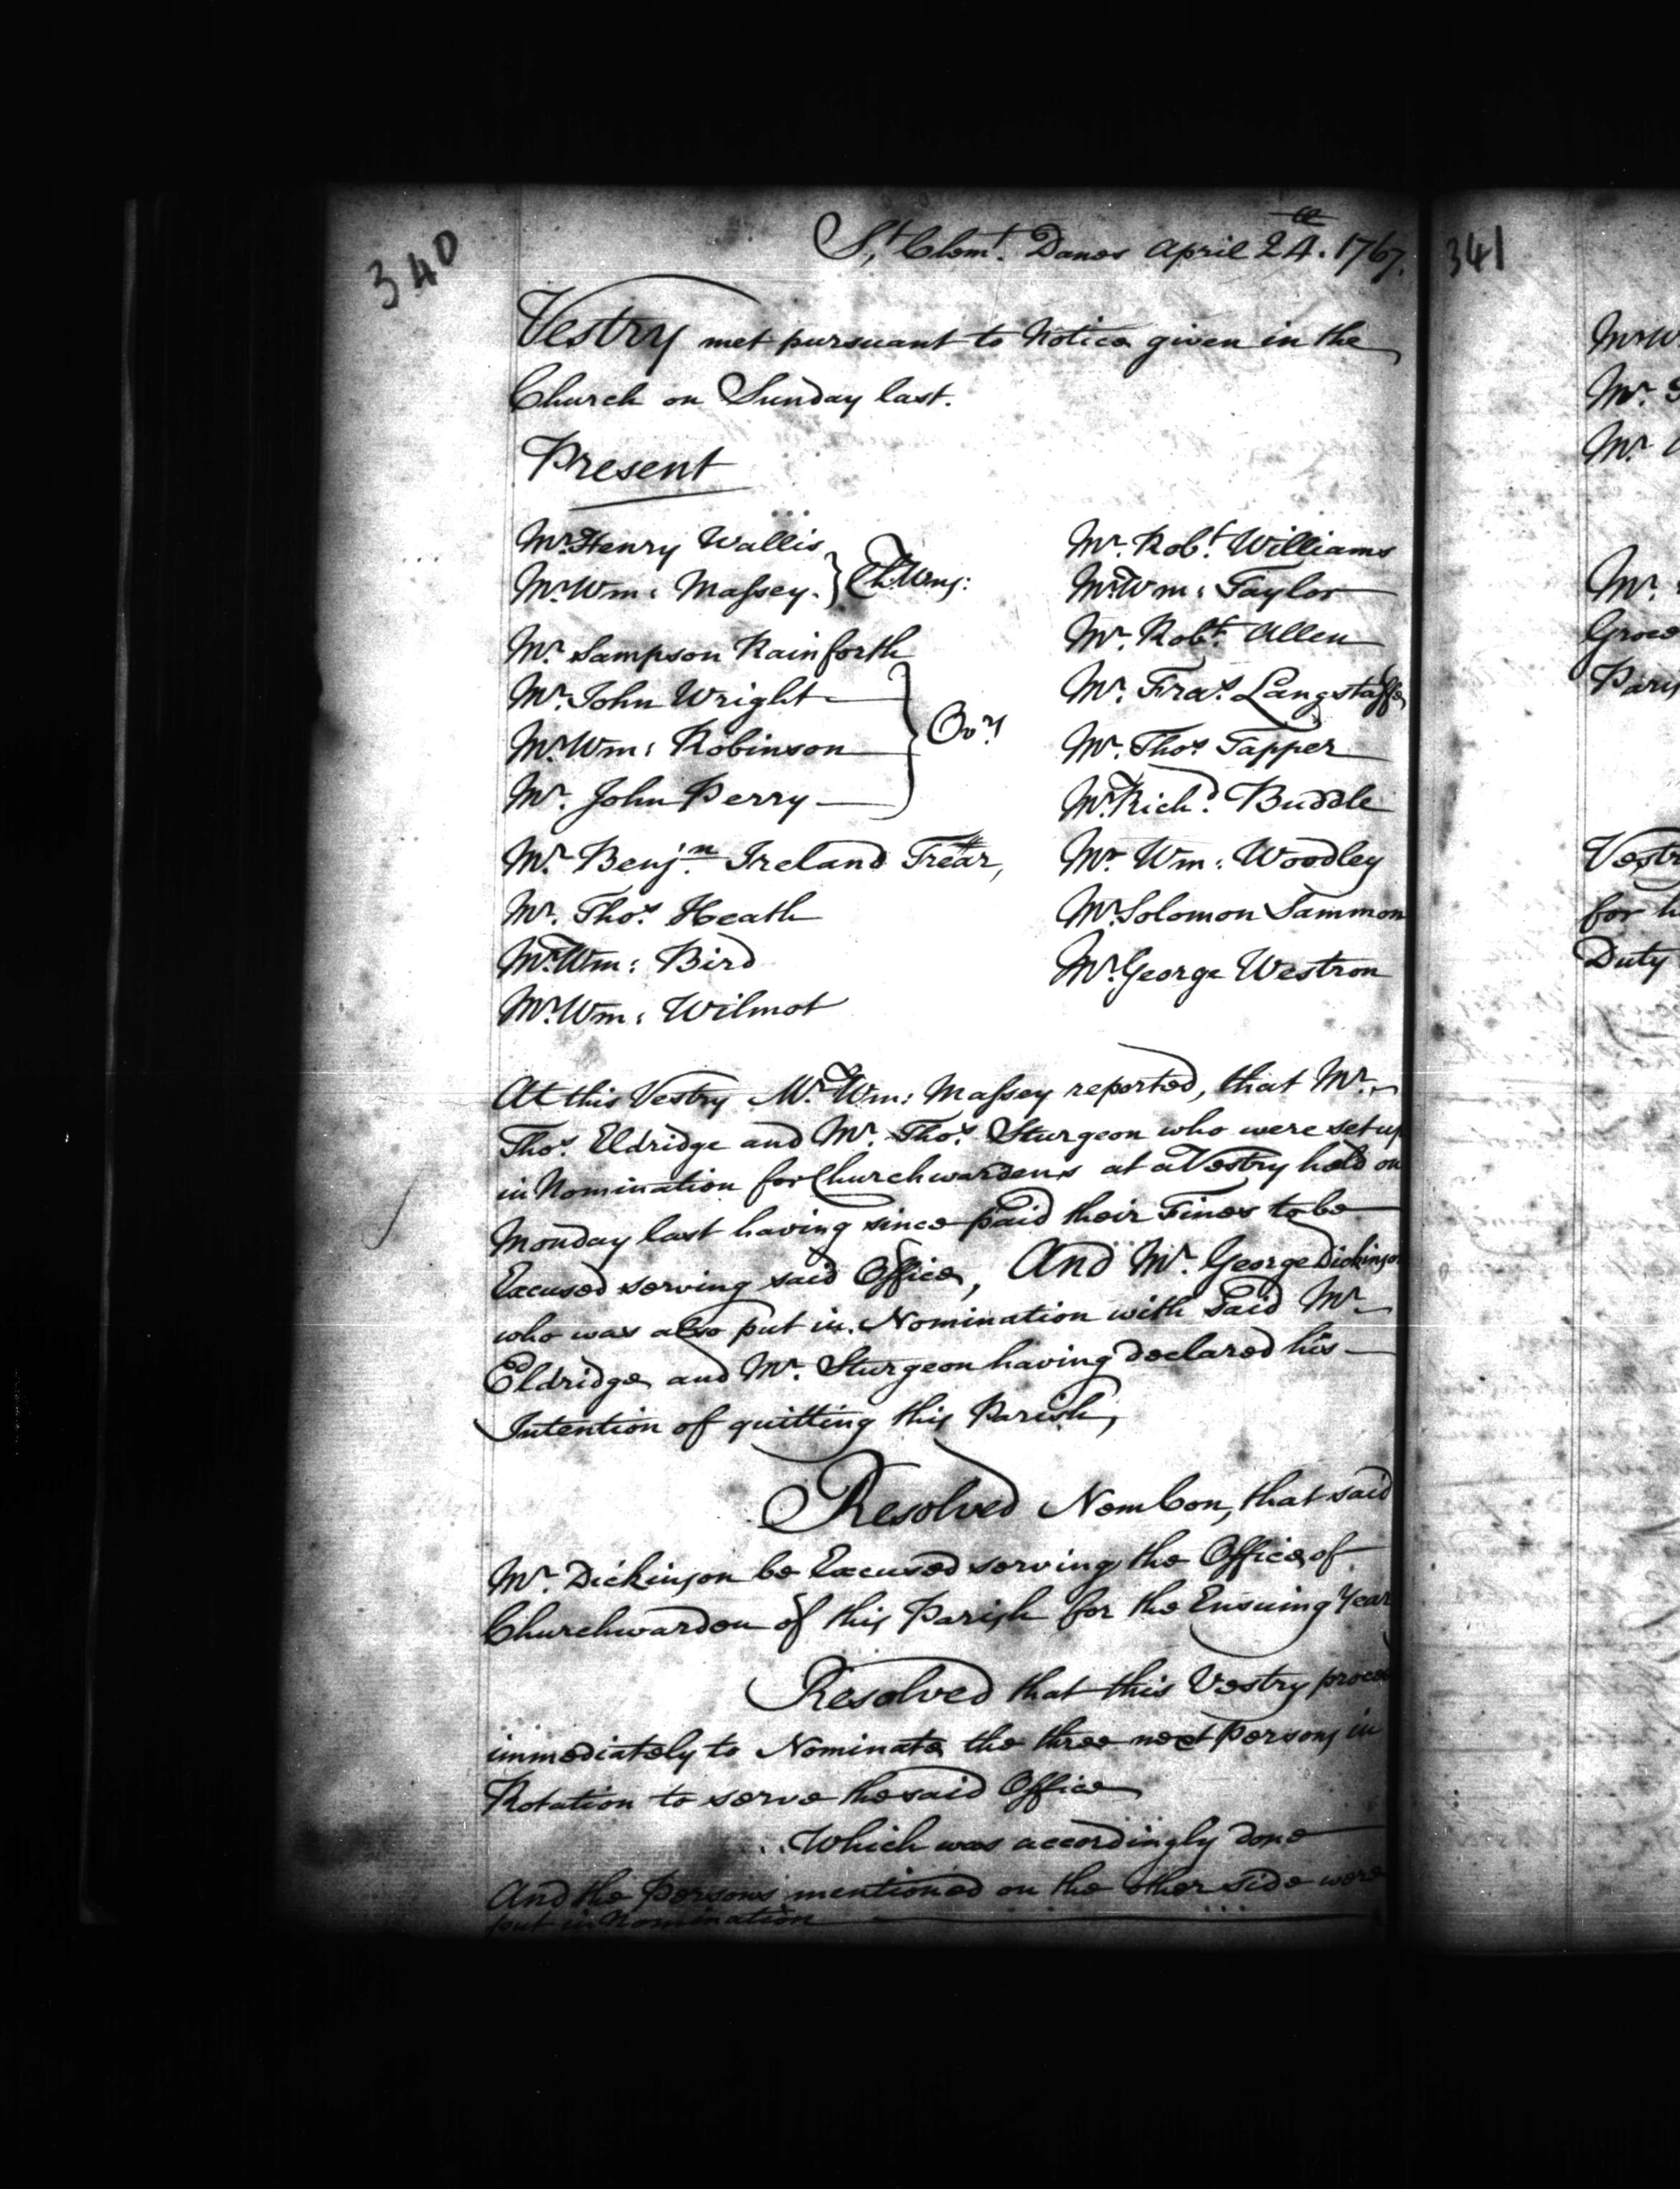 340
St. Clemt. Danes April 24th. 1767.
Vestry met pursuant to Notice given in the
Church on Sunday last.
Present
Mr. Henry Wallis
Mr. Wm: Massey. } Ch:Wns:
Mr. Sampson Rainforth
Mr. John Wright
Mr. Wm: Robinson
Mr. John Perry } Ovrs
Mr. Benjn. Ireland Trear,
Mr. Thos. Heath
Mr. Wm: Bird
Mr. Wm: Wilmot
Mr. Robt. Williams
Mr. Wm: Taylor
Mr. Robt. Allen
Mr. Fras. Langstaffe
Mr. Thos. Tapper
Mr. Richd. Buddle
Mr. Wm: Woodley
Mr. Solomon Sammon
Mr. George Westron
At this Vestry Mr. Wm: Massey reported, that Mr.
Thos. Eldridge and Mr. Thos. Sturgeon who were set up
in Nomination for Churchwardens at a Vestry held on
Monday last having since paid their Fines to be
Excused serving said Office, And Mr. George Dickinson
who was also put in Nomination with said Mr.
Eldridge and Mr. Sturgeon having declared his
Intention of quitting this Parish,
Resolved Nem Con, that said
Mr. Dickinson be Excused serving the Office of
Churchwarden of this Parish for the Ensuing Year
Resolved that this Vestry proceed
immediately to Nominate the three next Persons in
Rotation to serve the said Office
Which was accordingly done
And the Persons mentioned on the other side were
put in Nomination
341
Mr W
Mr.
Mr.
Mr.
Groce
Paris
Vestr
for h
Duty